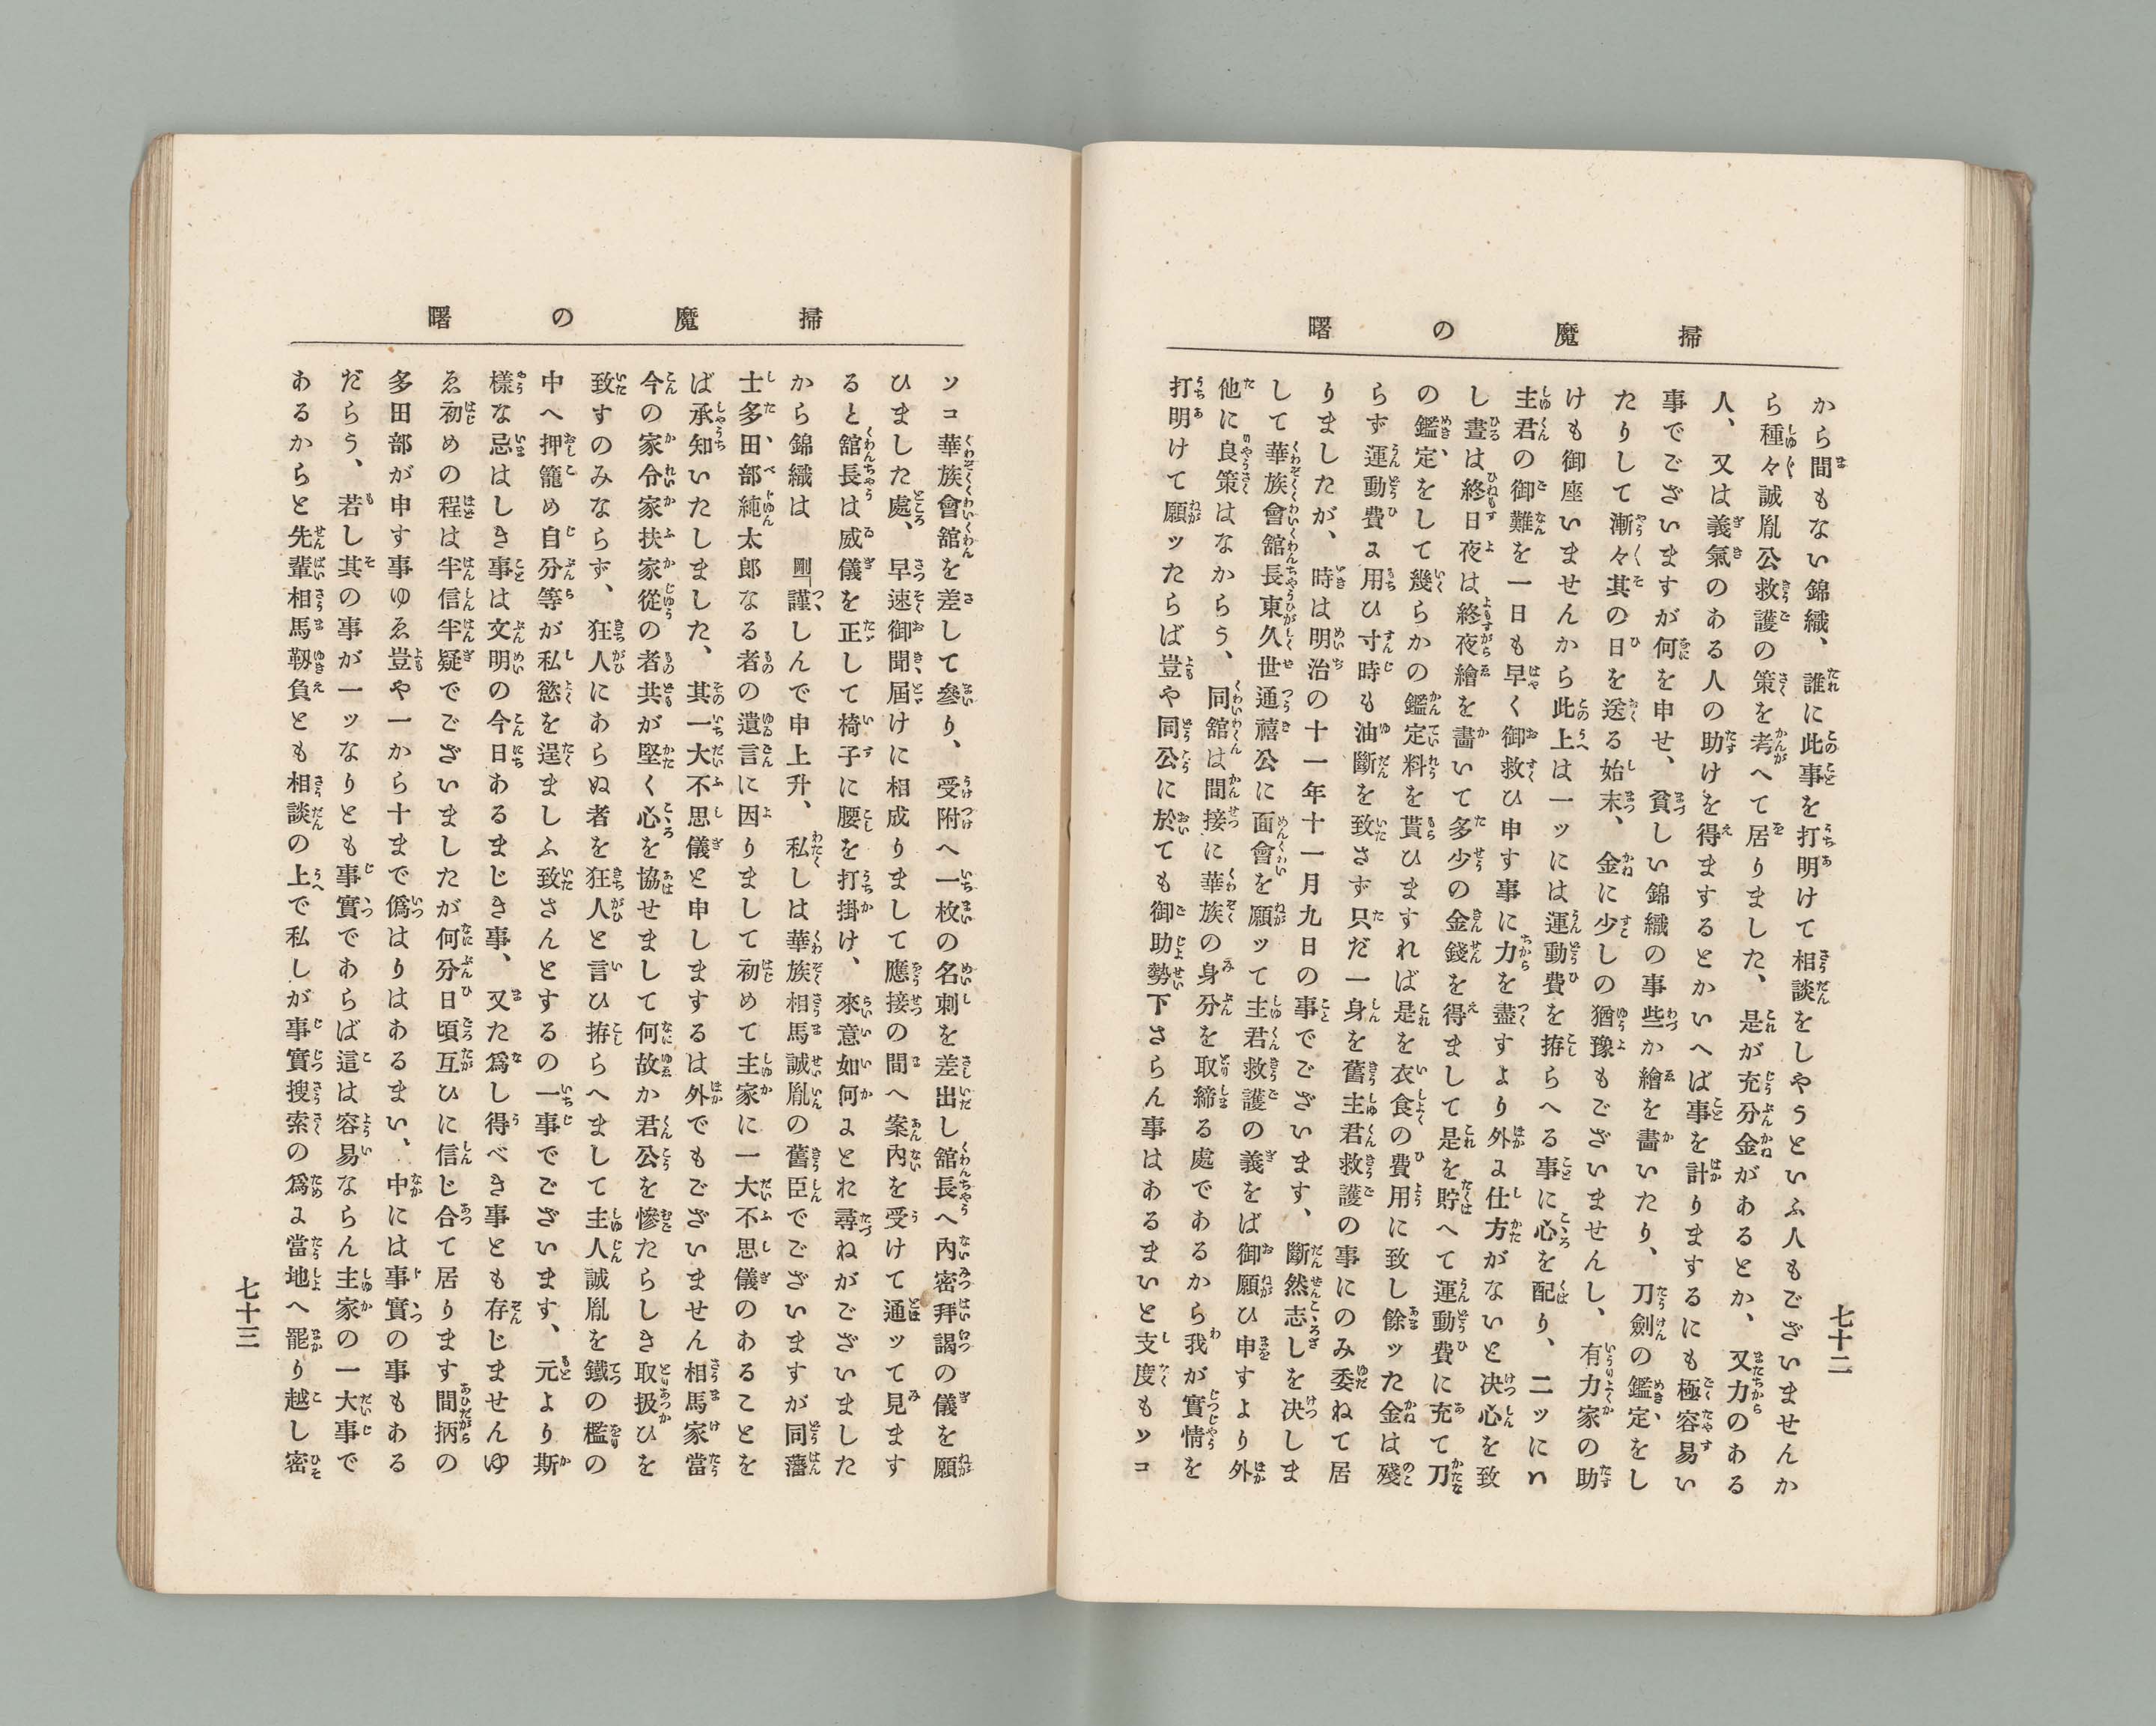 掃魔の曙
七十二
から間もない錦織、誰に此事を打明けて相談をしやうといふ人もございませんか
ら種々誠胤公救護の策を考へて居りました、是が充分金があるとか、又力のある
人、又は義氣のある人の助けを得まするとかいへば事を計りまするにも極容易い
事でございますが何を申せ、貧しい錦織の事些か繪を畵いたり、刀劍の鑑定をし
たりして漸々其の日を送る始末、金に少しの猶豫もございませんし、有力家の助
けも御座いませんから此上は一ッには運動費を拵らへる事に心を配り、二ッにハ
主君の御難を一日も早く御救ひ申す事に力を盡すより外ょ仕方がないと决心を致
し晝は終日夜は終夜繪を畵いて多少の金錢を得まして是を貯へて運動費に充て刀
の鑑定をして幾らかの鑑定料を貰ひますれば是を衣食の費用に致し餘ッた金は殘
らず運動費ょ用ひ寸時も油斷を致さず只だ一身を舊主君救護の事にのみ委ねて居
りましたが、時は明治の十一年十一月九日の事でございます、斷然志しを决しま
して華族會舘長東久世通禧公に面會を願ッて主君救護の義をば御願ひ申すより外
他に良策はなからう、同舘は間接に華族の身分を取締る處であるから我が實情を
打明けて願ッたらば豈や同公に於ても御助勢下さらん事はあるまいと支度もソコ
掃魔の曙
ソコ華族會舘を差して參り、受附へ一枚の名刺を差出し舘長へ內密拜謁の儀を願
ひました處、早速御聞屆けに相成りまして應接の間へ案內を受けて通ッて見ます
ると舘長は威儀を正して椅子に腰を打掛け、來意如何ょとれ尋ねがございました
から錦織は 剛「謹しんで申上升、私しは華族相馬誠胤の舊臣でございますが同藩
士多田部純太郎なる者の遺言に因りまして初めて主家に一大不思儀のあることを
ば承知いたしました、其一大不思儀と申しまするは外でもございません相馬家當
今の家令家扶家從の者共が堅く心を協せまして何故か君公を慘たらしき取扱ひを
致すのみならず、狂人にあらぬ者を狂人と言ひ拵らへまして主人誠胤を鐵の檻の
中へ押籠め自分等が私慾を逞ましふ致さんとするの一事でございます、元より斯
樣な忌はしき事は文明の今日あるまじき事、又た爲し得べき事とも存じませんゆ
ゑ初めの程は半信半疑でございましたが何分日頃互ひに信じ合て居ります間柄の
多田部が申す事ゆゑ豈や一から十まで僞はりはあるまい、中には事實の事もある
だらう、若し其の事が一ッなりとも事實であらば這は容易ならん主家の一大事で
あるからと先輩相馬靱負とも相談の上で私しが事實搜索の爲ょ當地へ罷り越し密
七十三